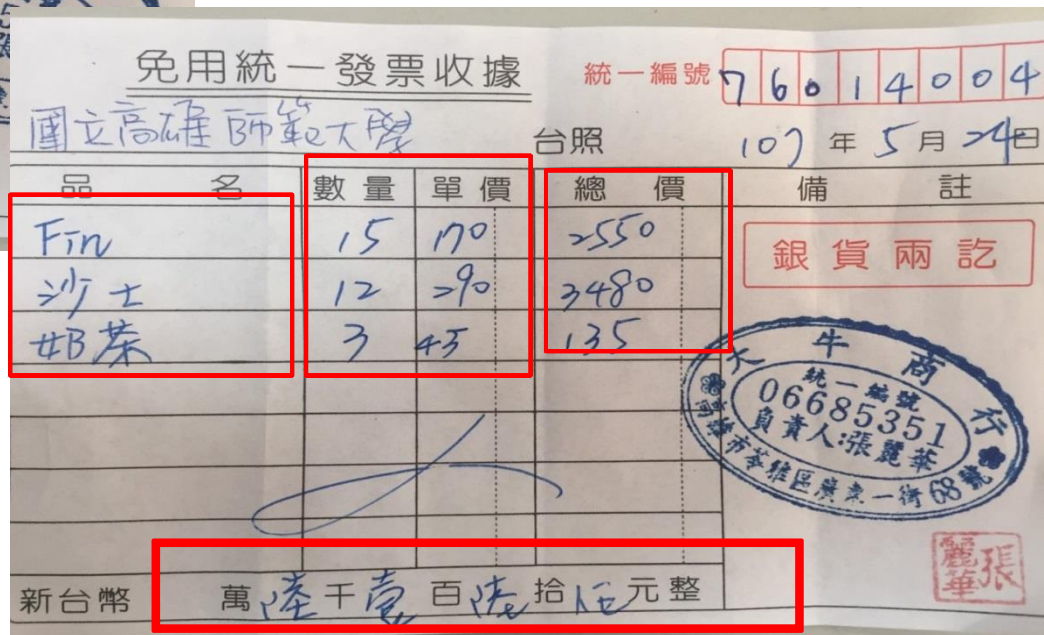 免用統一發票收據
統一編號 76014004
國立高雄師範大學 台照 107年5月24日
品名 數量 單價 總價 備註
Fin 15 170 2550
沙士 12 290 3480
奶茶 3 45 135
銀貨兩訖
大牛商行
統一編號
06685351
負責人:張麗華
高雄市苓雅區廣東一街68號
張麗華
新台幣 萬陸千壹百陸拾伍元整